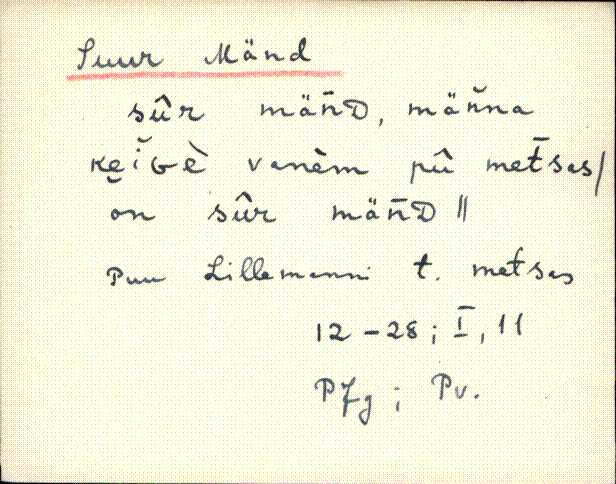 Suur Mänd
sûr mäñᴅ, mäñna
ke̬ĭɢè vanèm pû metsas/
on sûr mäñᴅ ||
Puu Lillemanni t. metsas
12-28; I, 11
Pv.